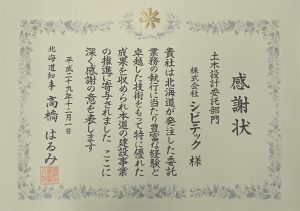 感謝状
土木設計委託部門
株式会社 シビテック 様
貴社は北海道が発注した委託
業務の執行に当たり豊富な経験と
卓越した技術をもって特に優れた
成果を収められ本道の建設事業
の推進に寄与されました ここに
深く感謝の意を表します
平成二十九年十二月一日
北海道知事 高橋 はるみ